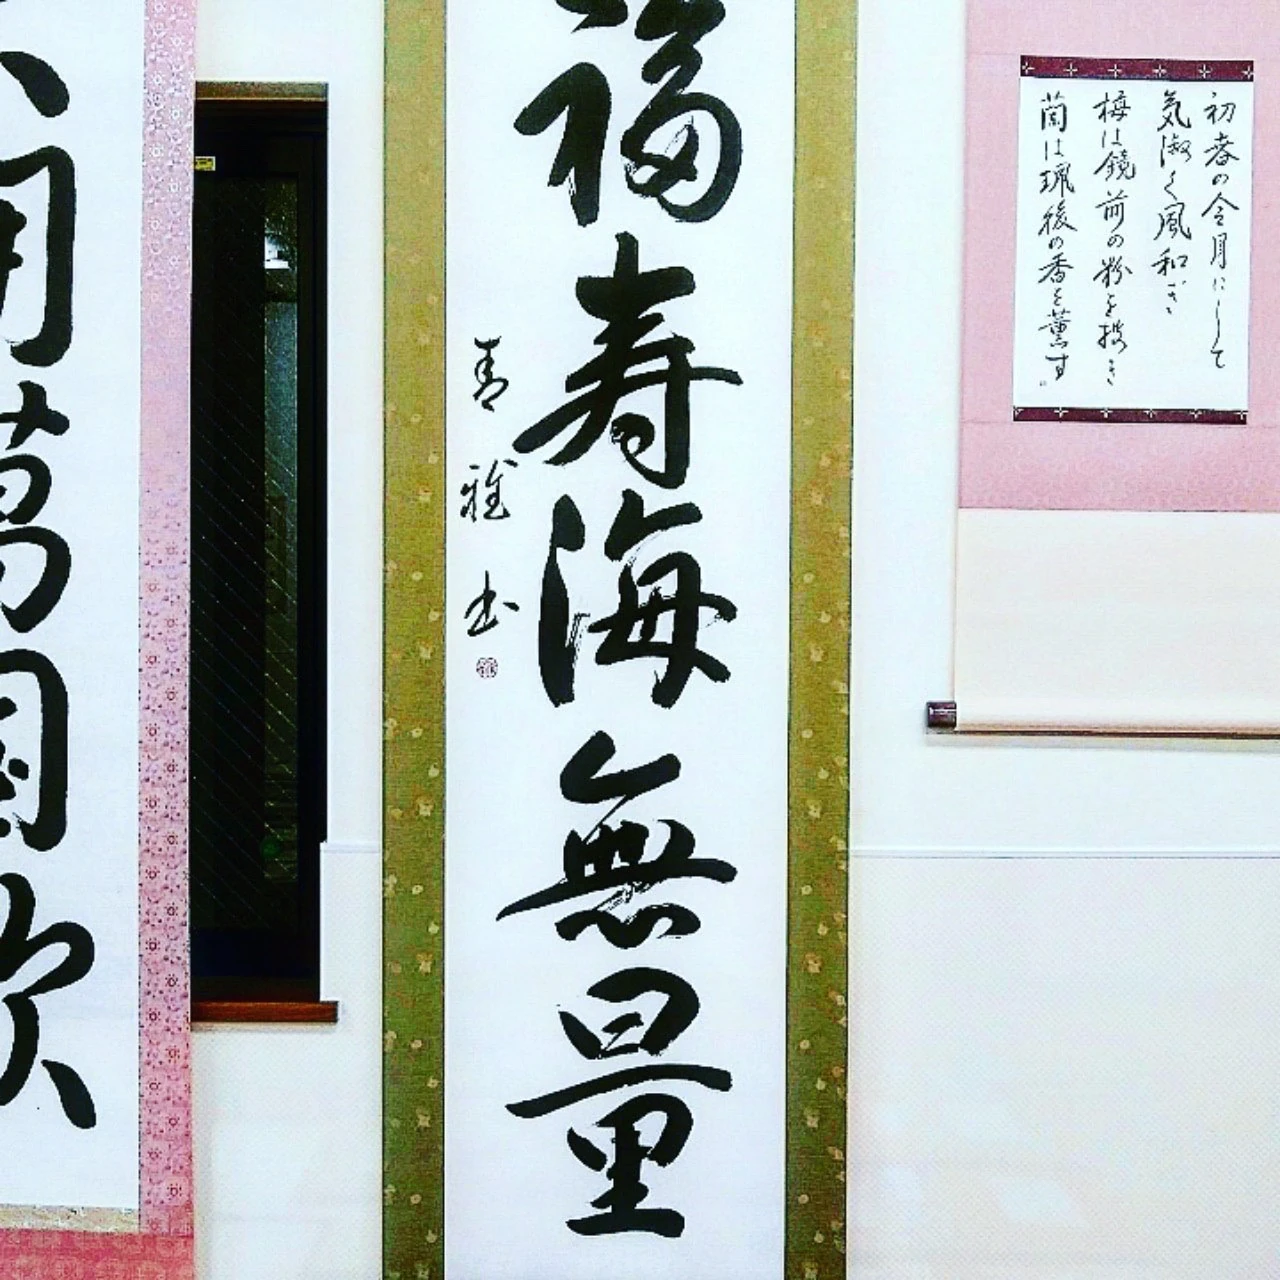 初春の令月にして
気淑く風和ぎ
梅は鏡前の粉を披き
蘭は珮後の香を薫す。
福寿海無量
青雅書
萬国歓